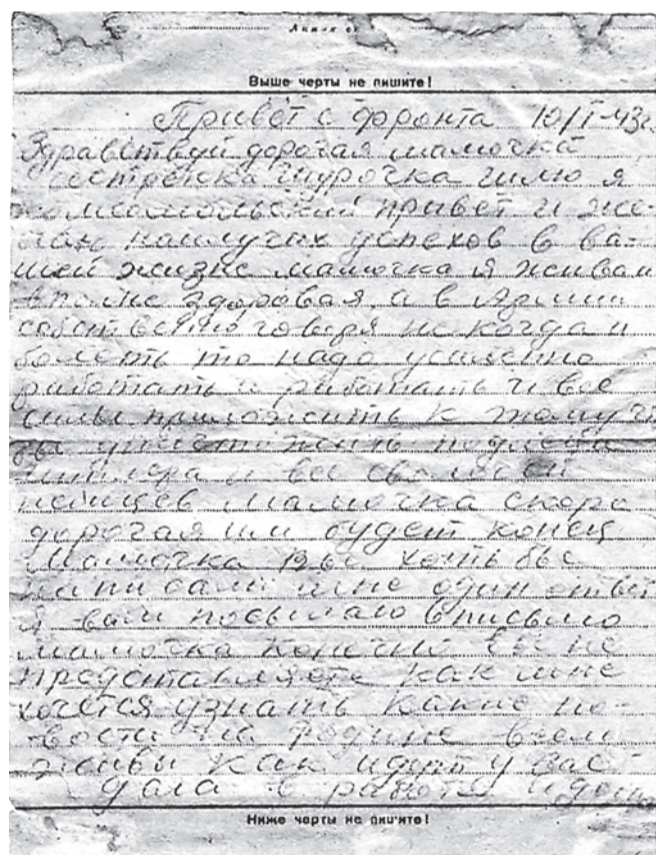 Линия от
Выше черты не пишите!
Привет с форонта 10/I-43г.
Здравствуй дорогая мамочка
сестренка Шурочка шлю я
комсомольский привет и же-
лаю наилучих успехов в ва-
шей жизне мамочка я жива и
вполне здоровая, а в Армии
собственно говоря некогда и
болеть то надо усиленно
работать и работать и все
силы приложить к тому ч
бы уничтожить подлеца
Гитлера и все сволочей
немцев мамочка скоро
дорогая им будет конец
Мамочка Вы хоть бы
написали мне один ответ
я вам посылаю письмо
мамочка конечно Вы не
представляете как мне
хочется узнать какие но-
вости на родине всем
живы как идут у вас
дала с работы и дома
Ниже черты не пишите!